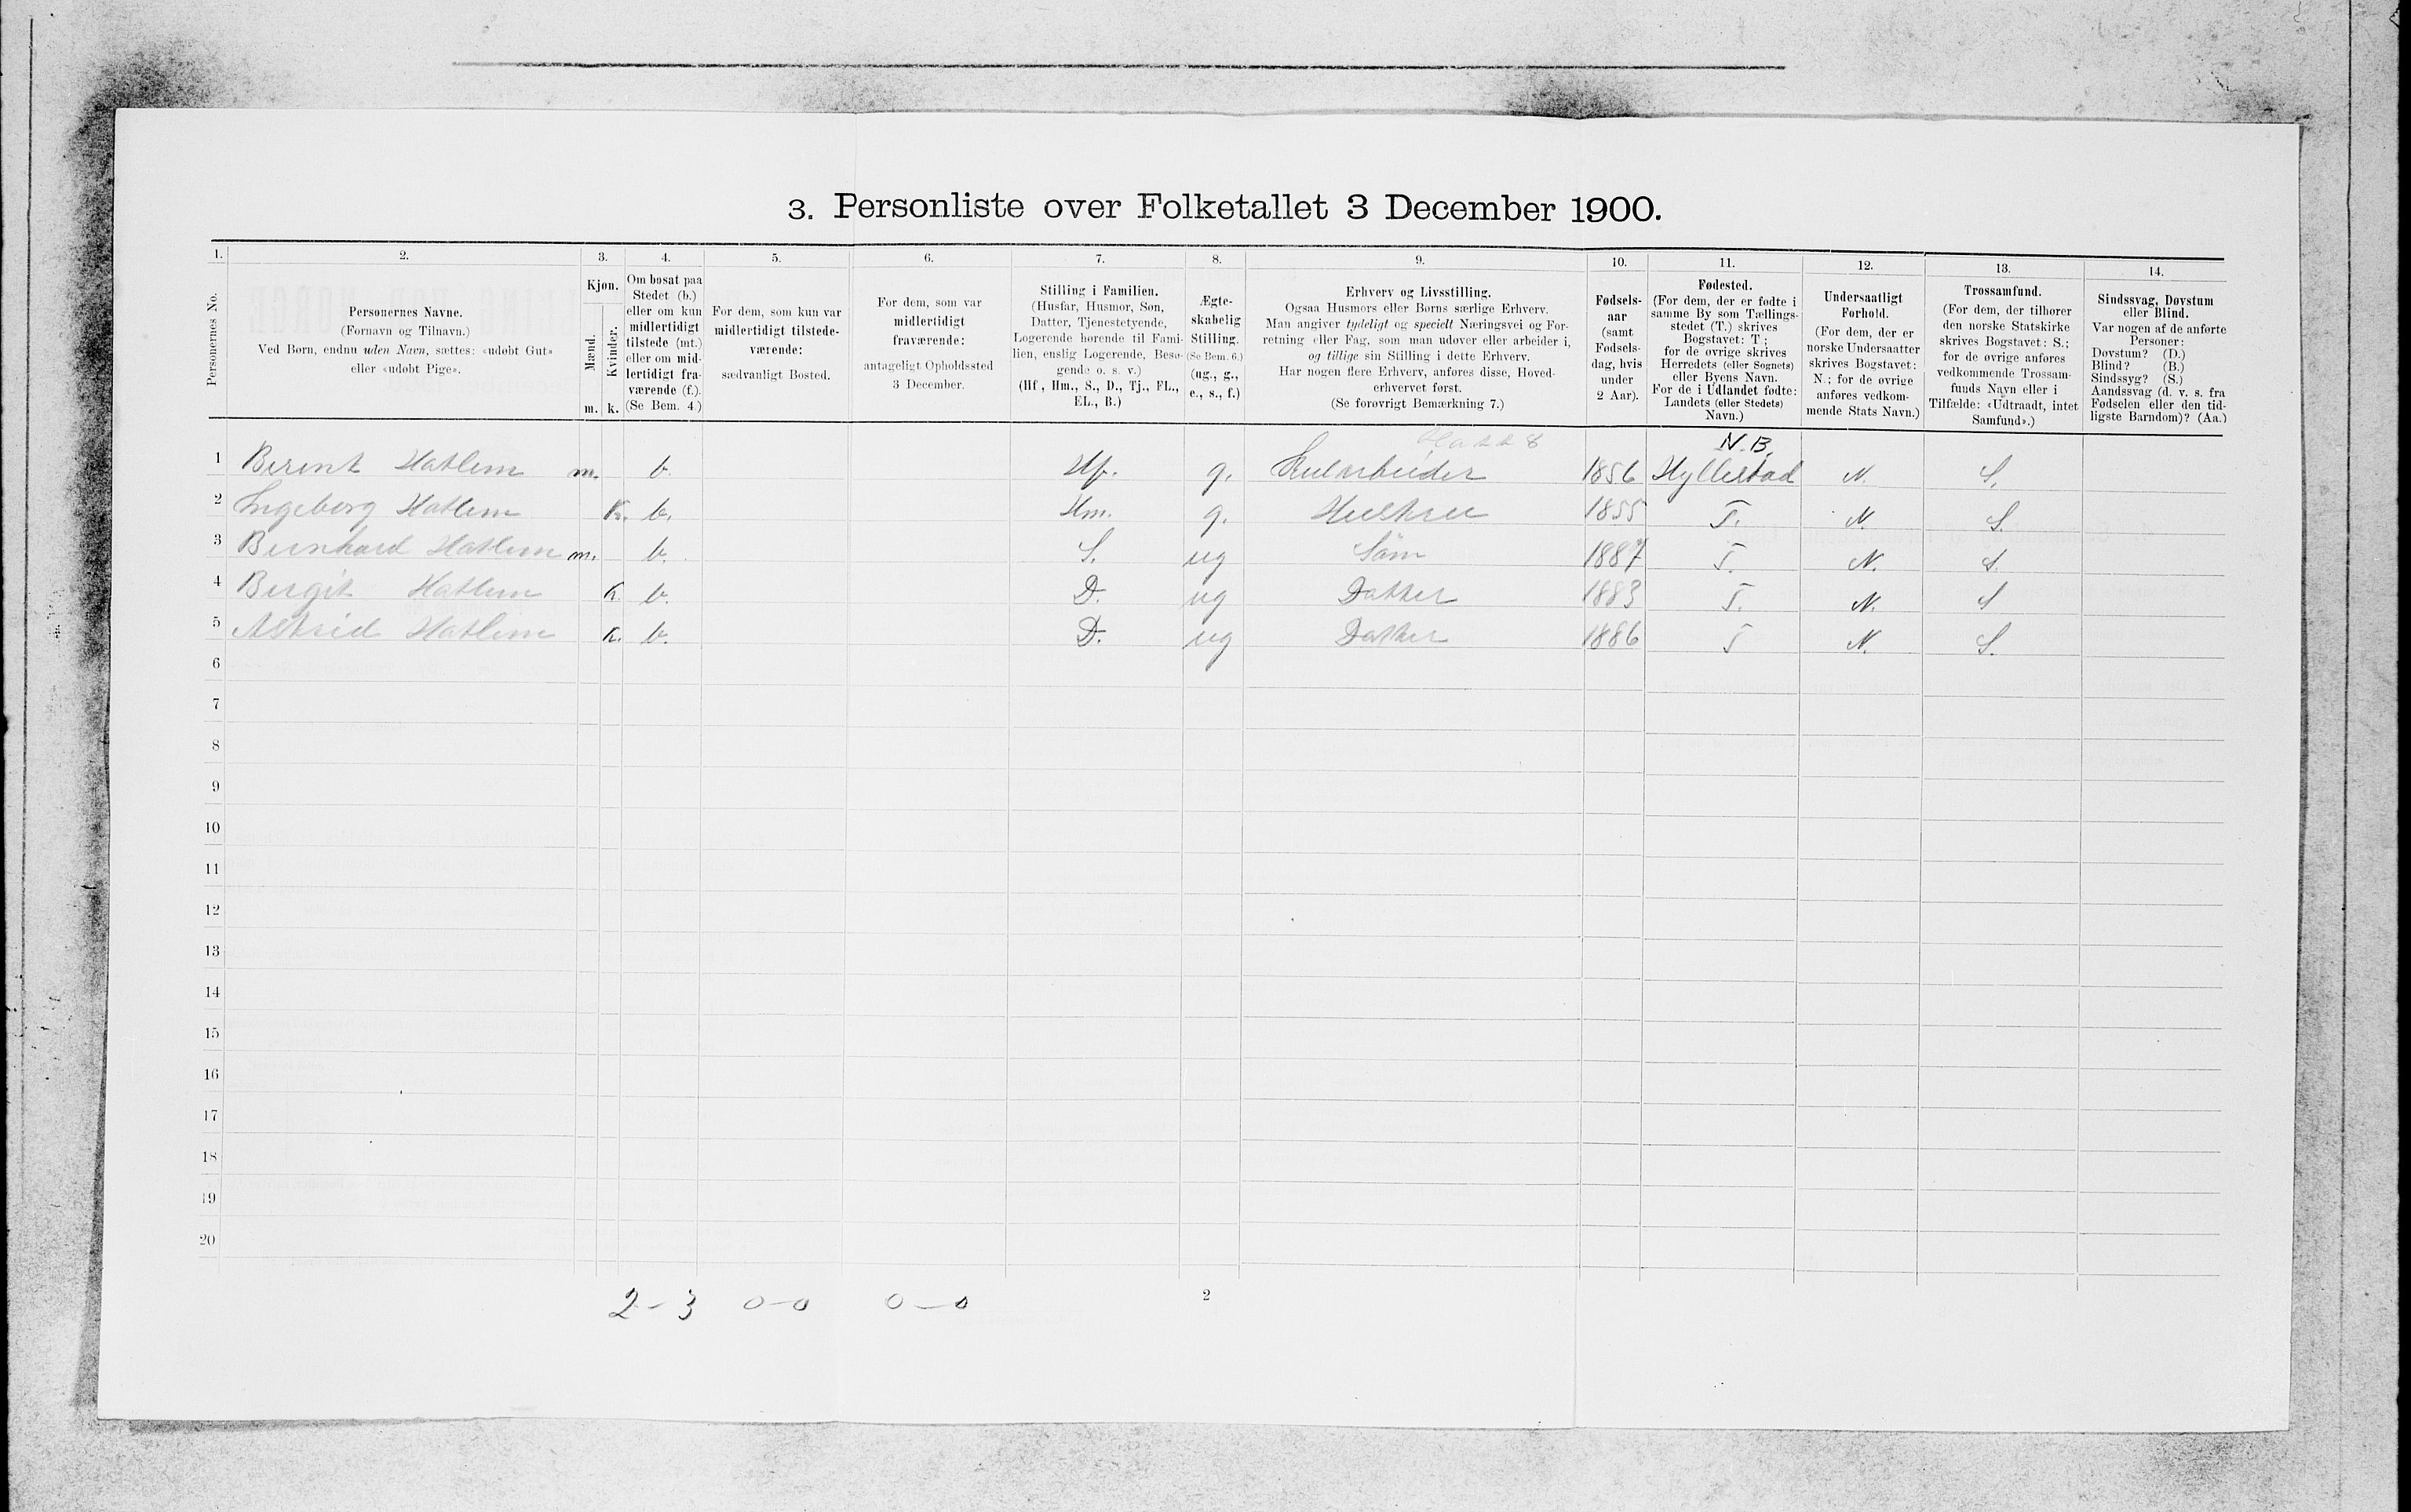 3. Personliste over Folketallet 3 December 1900.
1. 2. 3. 4. 5. 6. 7. 8. 9. 10. 11. 12. 13. 14.
Personernes No.
Personernes Navne.
(Fornavn og Tilnavn.)
Ved Børn, endnu uden Navn, sættes: «udøbt Gut»
eller «udøbt Pige».
Kjøn.
Mænd.
Kvinder.
m. k.
Om bosat paa
Stedet (b.)
eller om kun
midlertidigt
tilstede (mt.)
eller om mid-
lertidigt fra-
værende (f.).
(Se Bem. 4.)
For dem, som kun var
midlertidigt tilstede-
værende:
sædvanligt Bosted.
For dem, som var
midlertidigt
fraværende:
antageligt Opholdssted
3 December.
Stilling i Familien.
(Husfar, Husmor, Søn,
Datter, Tjenestetyende,
Logerende hørende til Fami-
lien, enslig Logerende, Besø-
gende o. s. v.)
(Hf., Hm., S., D., Tj., FL.,
EL., B.)
Ægte-
skabelig
Stilling.
(Se Bem. 6.)
(ug., g.,
e., s., f.)
Erhverv og Livsstilling.
Ogsaa Husmors eller Børns særlige Erhverv.
Man angiver tydeligt og specielt Næringsvei og For-
retning eller Fag, som man udøver eller arbeider i,
og tillige sin Stilling i dette Erhverv.
Har nogen flere Erhverv, anføres disse, Hoved-
erhvervet først.
(Se forøvrigt Bemærkning 7.)
Fødsels-
aar
(samt
Fødsels-
dag, hvis
under
2 Aar).
Fødested.
(For dem, der er fødte i
samme By som Tællings-
stedet (T.) skrives
Bogstavet: T.;
for de øvrige skrives
Herredets (eller Sognets)
eller Byens Navn.
For de i Udlandet fødte:
Landets (eller Stedets)
Navn.)
Undersaatligt
Forhold.
(For dem, der er
norske Undersaatter
skrives Bogstavet:
N.; for de øvrige
anføres vedkom-
mende Stats Navn.)
Trossamfund.
(For dem, der tilhører
den norske Statskirke
skrives Bogstavet: S.;
for de øvrige anføres
vedkommende Trossam-
funds Navn eller i
Tilfælde: «Udtraadt, intet
Samfund».)
Sindssvag, Døvstum
eller Blind.
Var nogen af de anførte
Personer:
Døvstum? (D.)
Blind? (B.)
Sindssyg? (S.)
Aandssvag (d. v. s. fra
Fødselen eller den tid-
ligste Barndom)? (Aa.)
N.B.
1 Berent Hatlem m. b. Hf. g. 1856 Hyllestad N. S.
2 Ingeborg Hatlem K. b. Hm. g. Hustru 1855 T. N. S.
3 Bernhard Hatlem m. b. S. ug Søn 1887 T. N. S
4 Bergit Hatlem K. b. D. ug Datter 1883 T. N. S
5 Astrid Hatlem K. b. D. ug Datter 1886 T N. S.
6
7
8
9
10
11
12
13
14
15
16
17
18
19
20
2-3 0-0 0-0
2